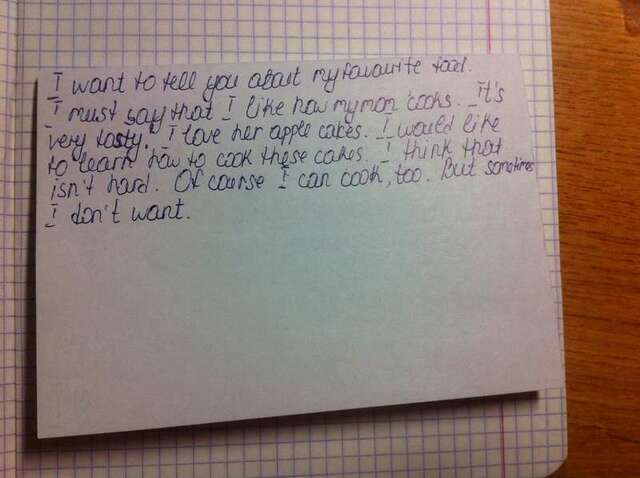 I want to tell you about my favourite food.
I must say that I like how my mom cooks. It's
very tasty! I love her apple cakes. I would like
to learn how to cook these cakes. I think that
isn't hard. Of course I can cook, too. But sometimes
I don't want.